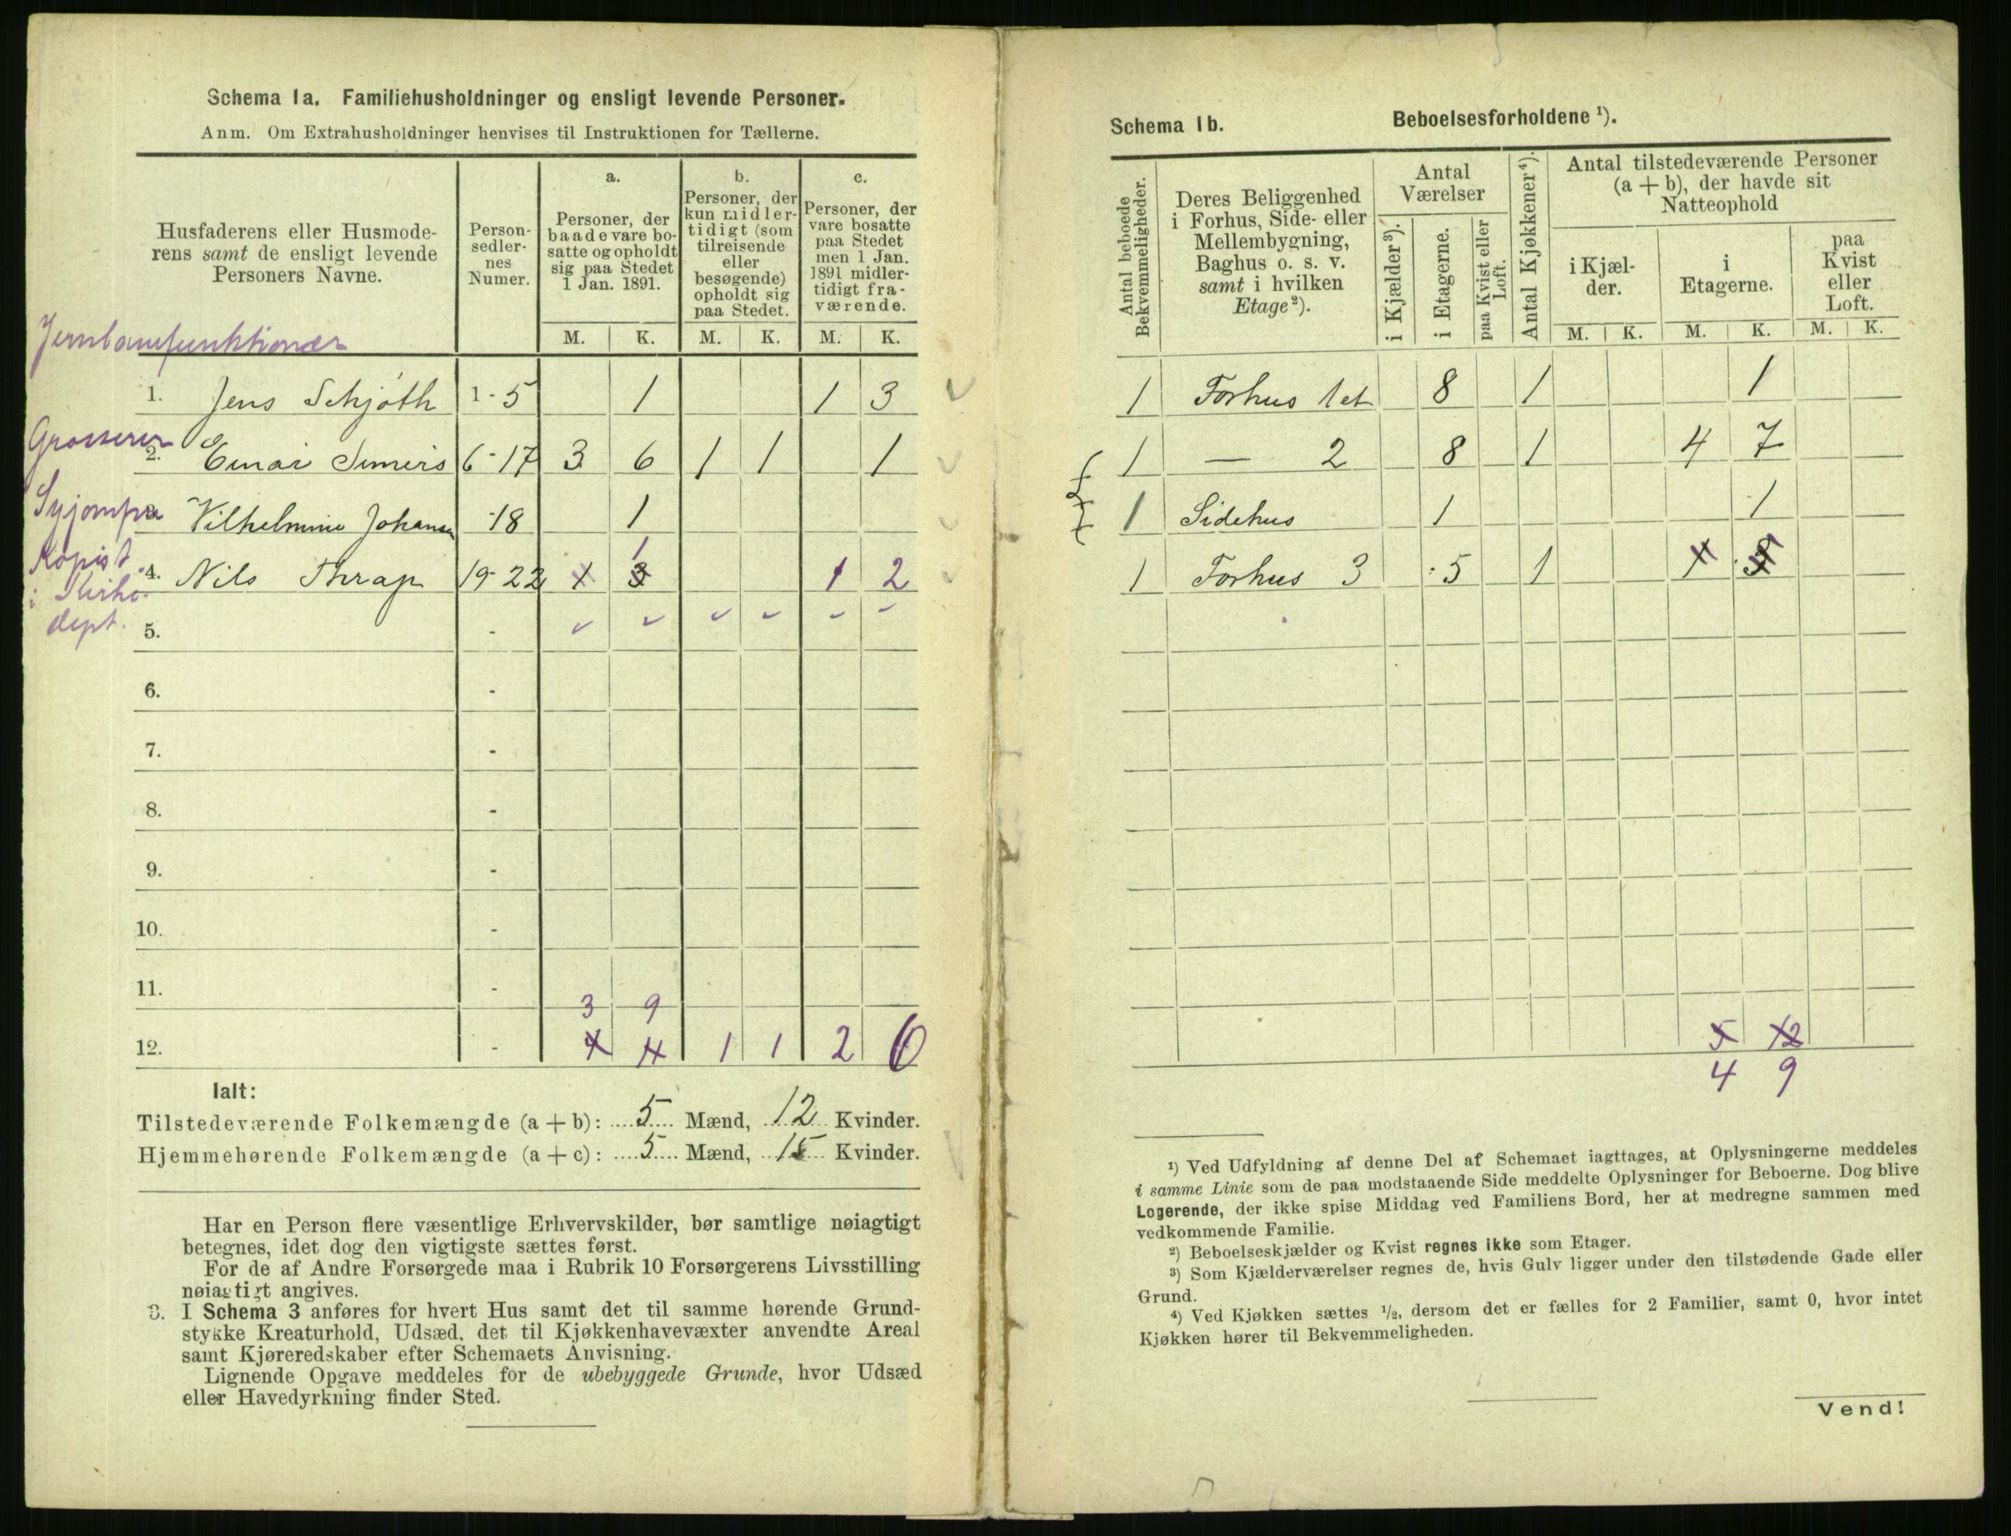 Schema 1a. Familiehusholdninger og ensligt levende Personer.
Anm. Om Extrahusholdninger henvises til Instruktionen for Tællerne.
Husfaderens eller Husmode-
rens samt de ensligt levende
Personers Navne.
Person-
sedler-
nes
Numer.
a.
Personer, der
baade vare bo-
satte og opholdt
sig paa Stedet
1 Jan. 1891.
b.
Personer, der
kun midler-
tidigt (som
tilreisende
eller
besøgende)
opholdt sig
paa Stedet.
c.
Personer, der
vare bosatte
paa Stedet
men 1 Jan.
1891 midler-
tidigt fra-
værende.
M. K. M. K. M. K.
Jernbanefunktionær
1. Jens Schjöth 1-5 1 1 3
Grosserer
2. Einar Simers 6-17 3 6 1 1 1
Syjomfru
3. Vilhelmine Johansen -18 1
Kopist
i Kirke-
dept.
1
4. Nils Thrap 19-22 1 3 1 2
5. -
6. -
7. -
8. -
9. -
10. -
11. -
3 9
12. - 4 11 1 1 2 6
Ialt:
Tilstedeværende Folkemængde (a + b): 5 Mænd, 12 Kvinder.
Hjemmehørende Folkemængde (a + c): 5 Mænd, 15 Kvinder.
Har en Person flere væsentlige Erhvervskilder, bør samtlige nøiagtigt
betegnes, idet dog den vigtigste sættes først.
For de af Andre Forsørgede maa i Rubrik 10 Forsørgerens Livsstilling
nøiagtigt angives.
3. I Schema 3 anføres for hvert Hus samt det til samme hørende Grund-
stykke Kreaturhold, Udsæd, det til Kjøkkenhavevæxter anvendte Areal
samt Kjøreredskaber efter Schemaets Anvisning.
Lignende Opgave meddeles for de ubebyggede Grunde, hvor Udsæd
eller Havedyrkning finder Sted.
Schema 1b. Beboelsesforholdene ¹).
Antal beboede
Bekvemmeligheder.
Deres Beliggenhed
i Forhus, Side- eller
Mellembygning,
Baghus o. s. v.
samt i hvilken
Etage²).
Antal
Værelser
i Kjælder³).
i Etagerne.
paa Kvist eller
Loft.
Antal Kjøkkener⁴).
Antal tilstedeværende Personer
(a + b), der havde sit
Natteophold
i Kjæl-
der.
i
Etagerne.
paa
Kvist
eller
Loft.
M. K. M. K. M. K.
1 Forhus 1 et 8 1 1
1 — 2 8 1 4 7
1 Sidehus 1 1
1 Forhus 3 5 1 1 3
5 12
4 9
¹) Ved Udfyldning af denne Del af Schemaet iagttages, at Oplysningerne meddeles
i samme Linie som de paa modstaaende Side meddelte Oplysninger for Beboerne. Dog blive
Logerende, der ikke spise Middag ved Familiens Bord, her at medregne sammen med
vedkommende Familie.
²) Beboelseskjælder og Kvist regnes ikke som Etager.
³) Som Kjælderværelser regnes de, hvis Gulv ligger under den tilstødende Gade eller
Grund.
⁴) Ved Kjøkken sættes ¹/₂, dersom det er fælles for 2 Familier, samt 0, hvor intet
Kjøkken hører til Bekvemmeligheden.
Vend!